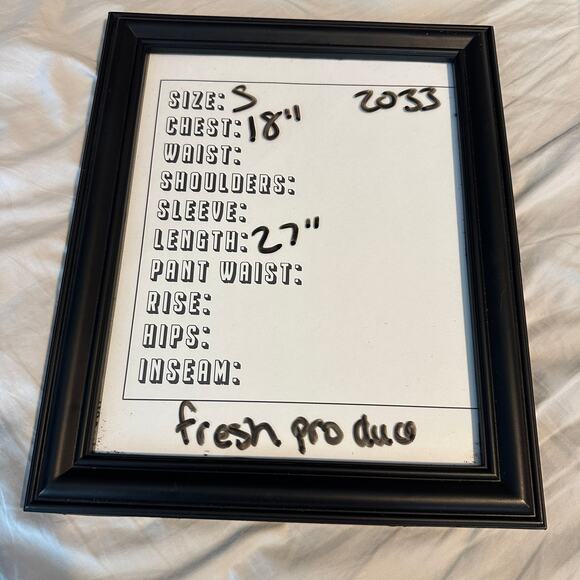 SIZE: S 2033
CHEST: 18"
WAIST:
SHOULDERS:
SLEEVE:
LENGTH: 27"
PANT WAIST:
RISE:
HIPS:
INSEAM:
fresh produce